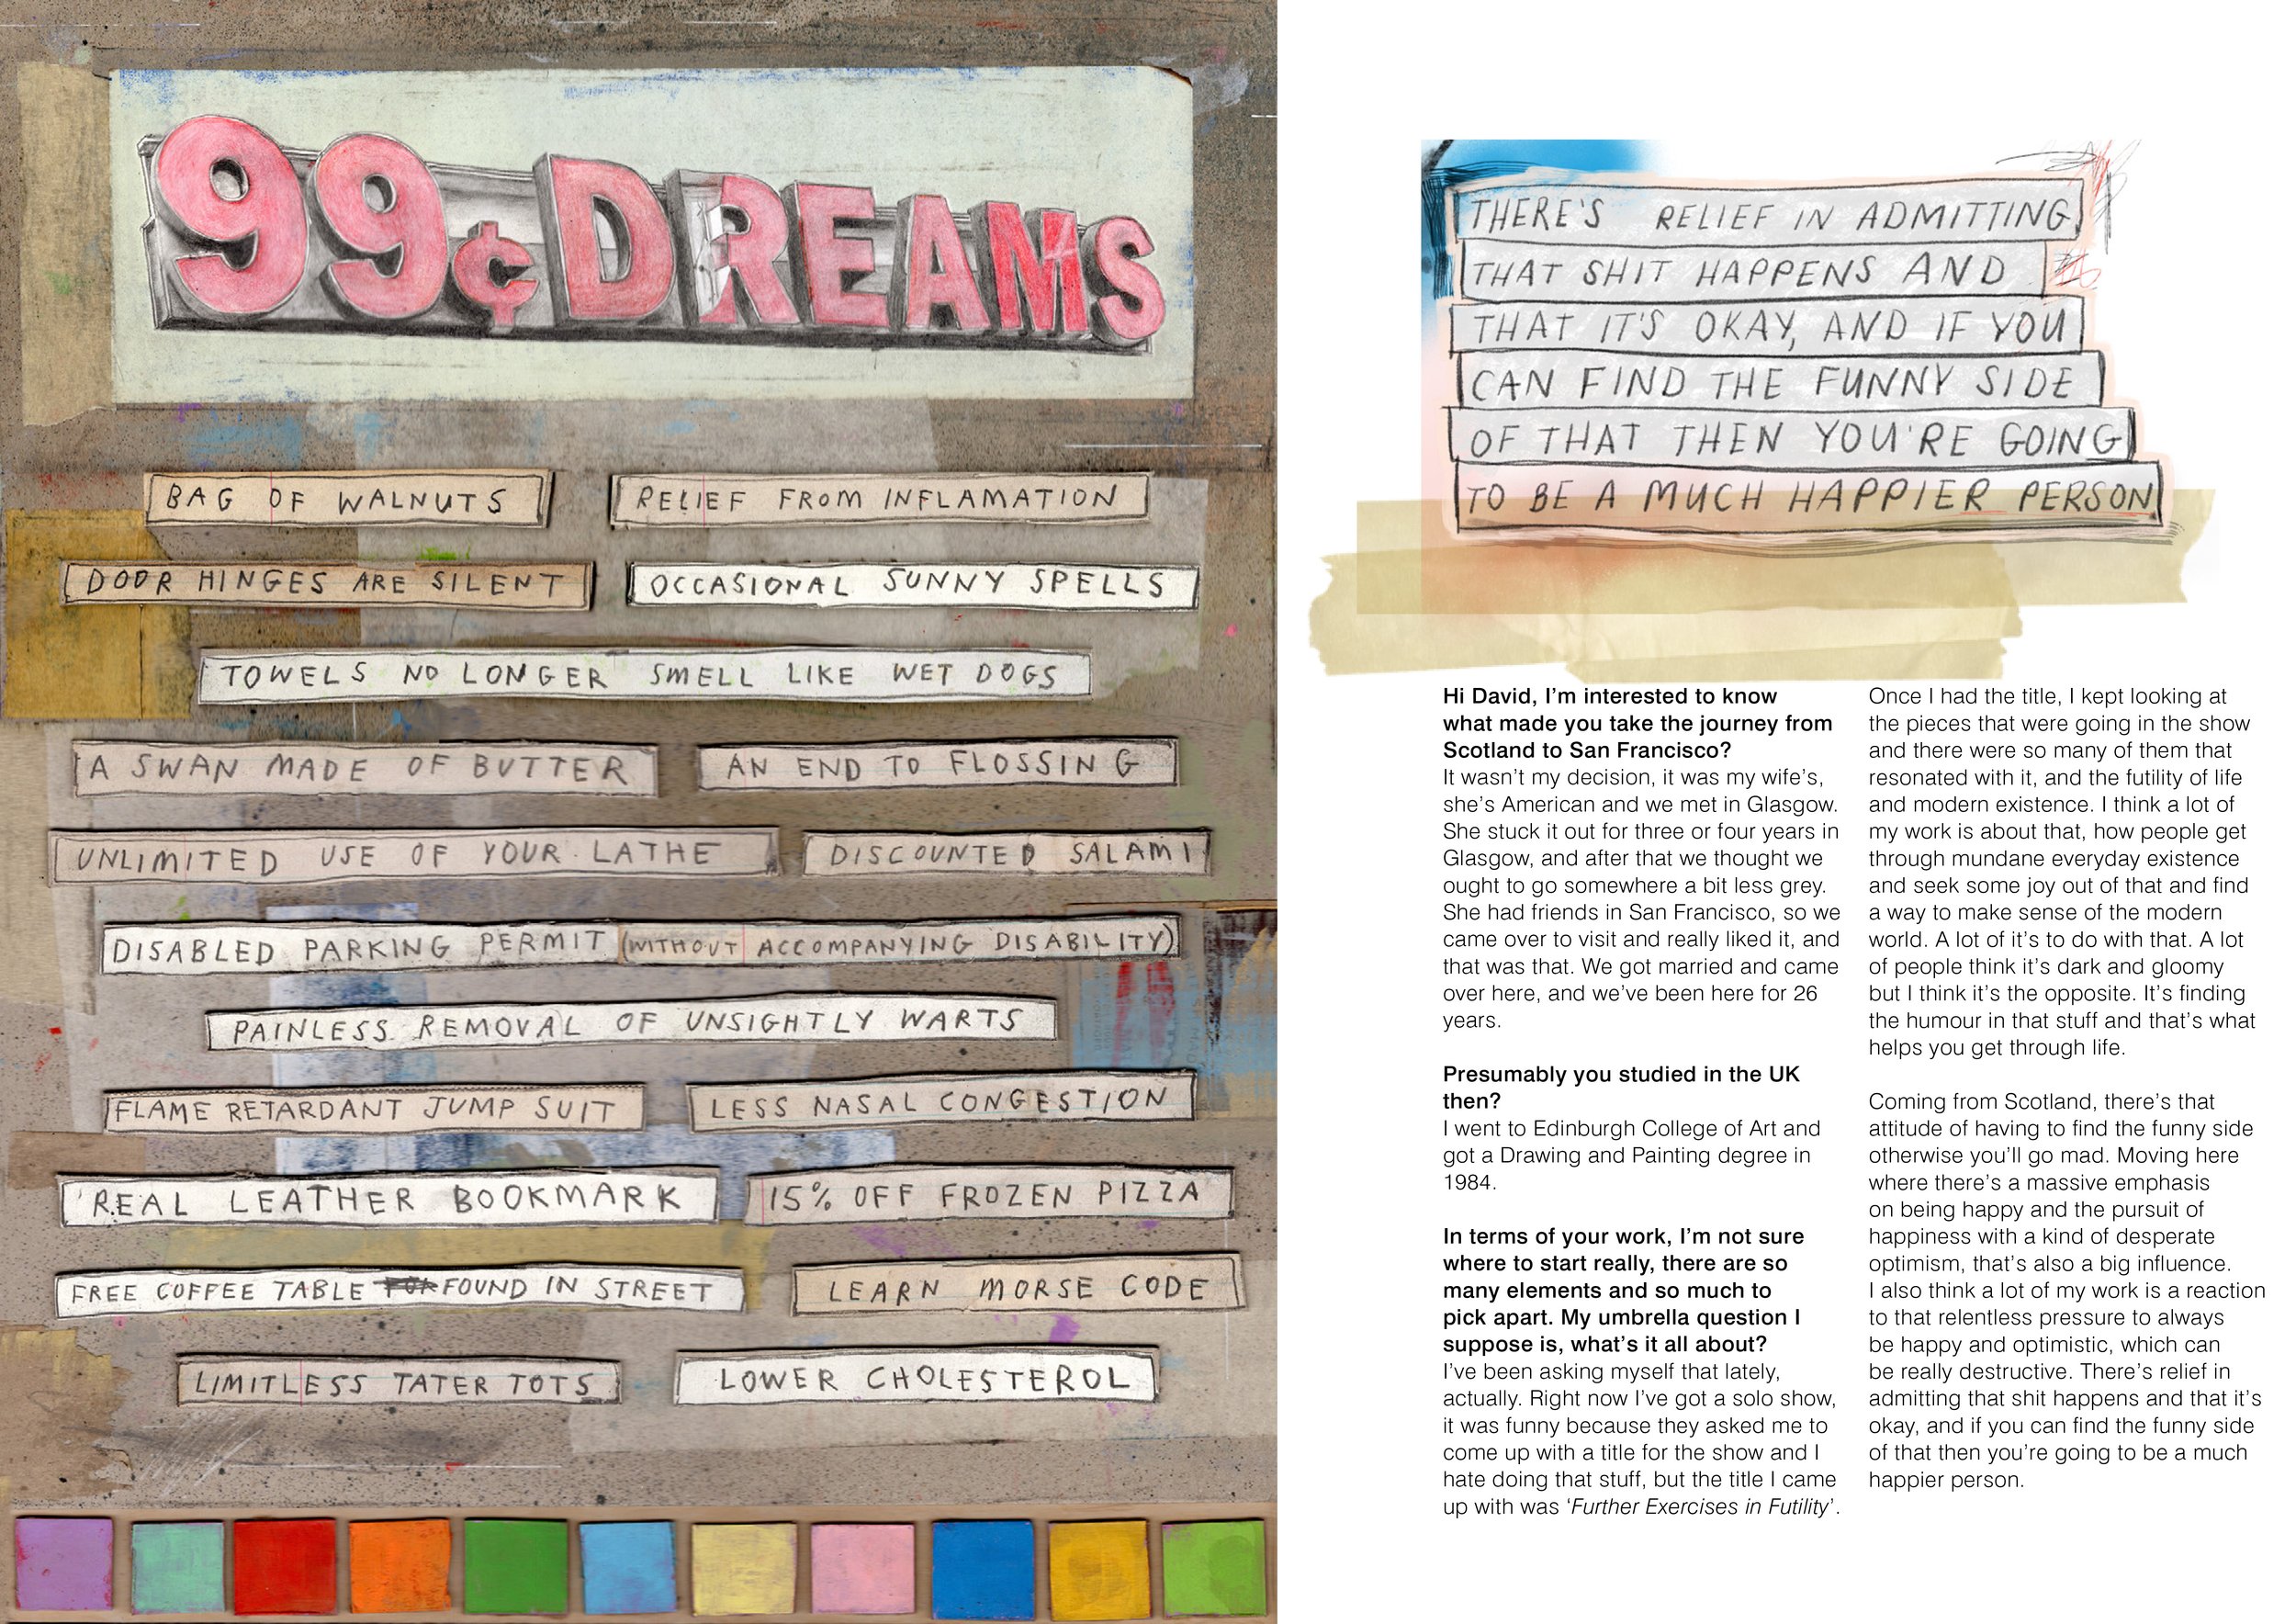 99¢ DREAMS
BAG OF WALNUTS
RELIEF FROM INFLAMATION
DOOR HINGES ARE SILENT
OCCASIONAL SUNNY SPELLS
TOWELS NO LONGER SMELL LIKE WET DOGS
A SWAN MADE OF BUTTER
AN END TO FLOSSING
UNLIMITED USE OF YOUR LATHE
DISCOUNTED SALAMI
DISABLED PARKING PERMIT (WITHOUT ACCOMPANYING DISABILITY)
PAINLESS REMOVAL OF UNSIGHTLY WARTS
FLAME RETARDANT JUMP SUIT
LESS NASAL CONGESTION
REAL LEATHER BOOKMARK
15% OFF FROZEN PIZZA
FREE COFFEE TABLE FOUND IN STREET
LEARN MORSE CODE
LIMITLESS TATER TOTS
LOWER CHOLESTEROL
THERE'S RELIEF IN ADMITTING
THAT SHIT HAPPENS AND
THAT IT'S OKAY, AND IF YOU
CAN FIND THE FUNNY SIDE
OF THAT THEN YOU'RE GOING
TO BE A MUCH HAPPIER PERSON
Hi David, I'm interested to know
what made you take the journey from
Scotland to San Francisco?
It wasn't my decision, it was my wife's,
she's American and we met in Glasgow.
She stuck it out for three or four years in
Glasgow, and after that we thought we
ought to go somewhere a bit less grey.
She had friends in San Francisco, so we
came over to visit and really liked it, and
that was that. We got married and came
over here, and we've been here for 26
years.
Presumably you studied in the UK
then?
I went to Edinburgh College of Art and
got a Drawing and Painting degree in
1984.
In terms of your work, I'm not sure
where to start really, there are so
many elements and so much to
pick apart. My umbrella question I
suppose is, what's it all about?
I've been asking myself that lately,
actually. Right now I've got a solo show,
it was funny because they asked me to
come up with a title for the show and I
hate doing that stuff, but the title I came
up with was 'Further Exercises in Futility'.
Once I had the title, I kept looking at
the pieces that were going in the show
and there were so many of them that
resonated with it, and the futility of life
and modern existence. I think a lot of
my work is about that, how people get
through mundane everyday existence
and seek some joy out of that and find
a way to make sense of the modern
world. A lot of it's to do with that. A lot
of people think it's dark and gloomy
but I think it's the opposite. It's finding
the humour in that stuff and that's what
helps you get through life.
Coming from Scotland, there's that
attitude of having to find the funny side
otherwise you'll go mad. Moving here
where there's a massive emphasis
on being happy and the pursuit of
happiness with a kind of desperate
optimism, that's also a big influence.
I also think a lot of my work is a reaction
to that relentless pressure to always
be happy and optimistic, which can
be really destructive. There's relief in
admitting that shit happens and that it's
okay, and if you can find the funny side
of that then you're going to be a much
happier person.